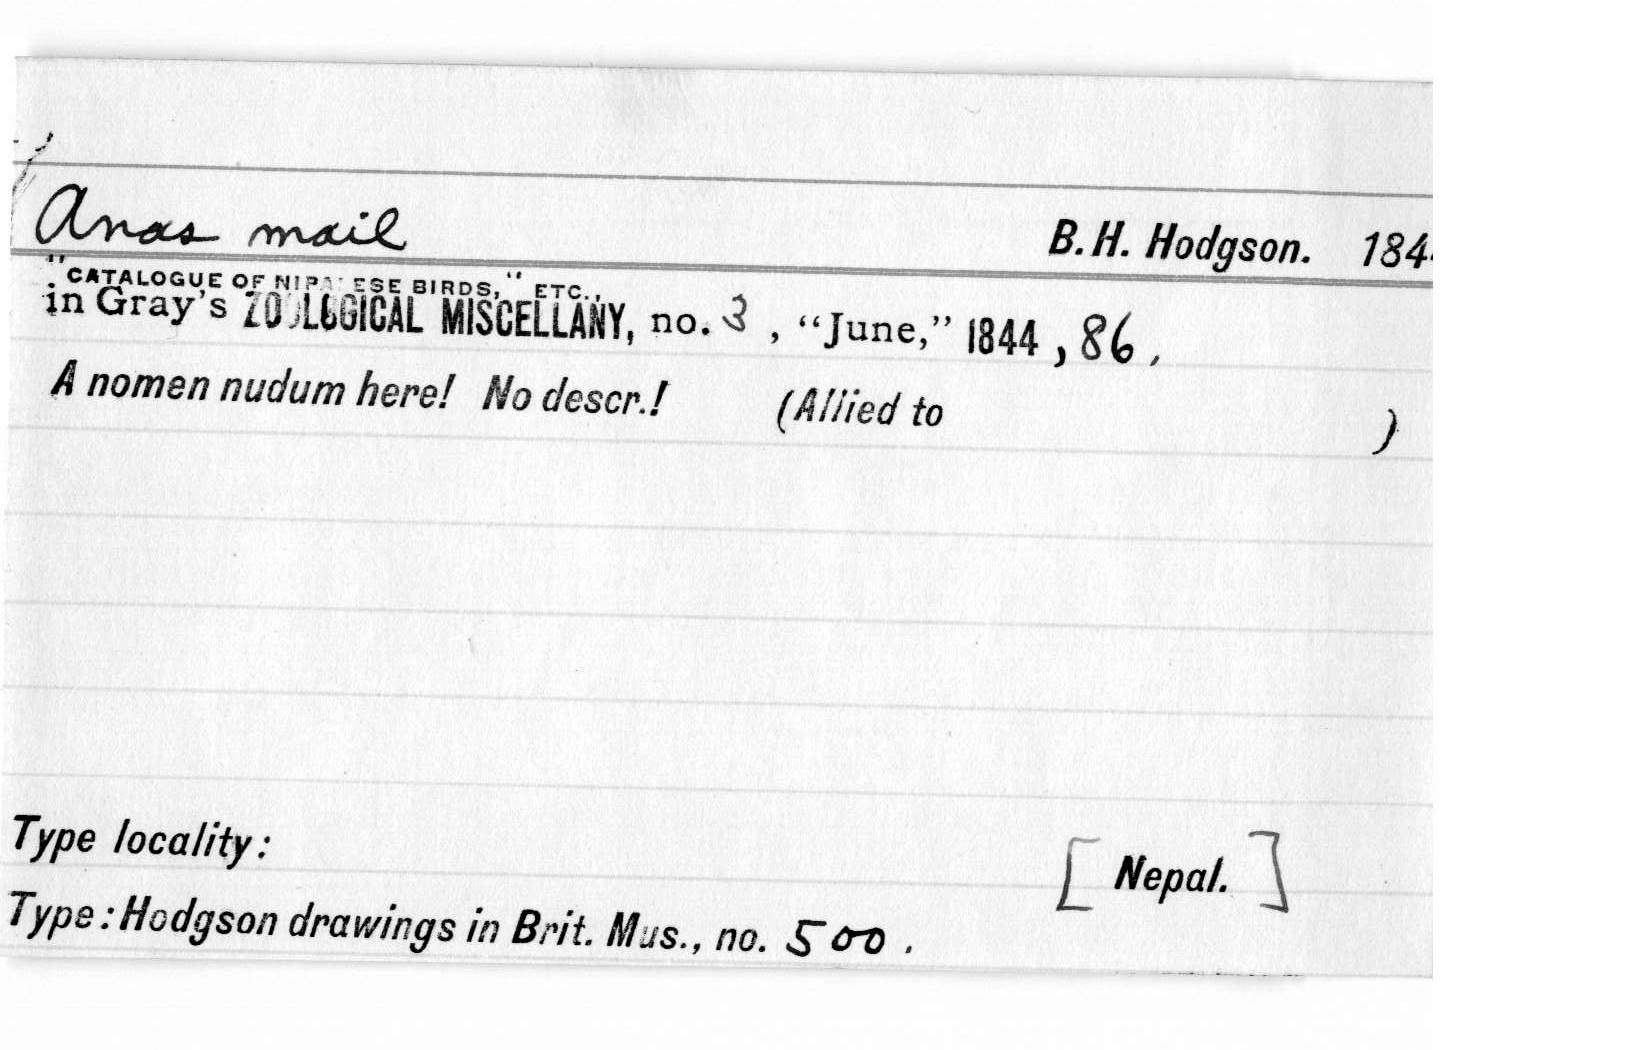 Anas mail B.H. Hodgson. 184
"CATALOGUE OF NIPALESE BIRDS," ETC.,
in Gray's ZOOLOGICAL MISCELLANY, no. 3, "June," 1844, 86.
A nomen nudum here! No descr.! (Allied to )
Type locality: [Nepal.]
Type: Hodgson drawings in Brit. Mus., no. 500.